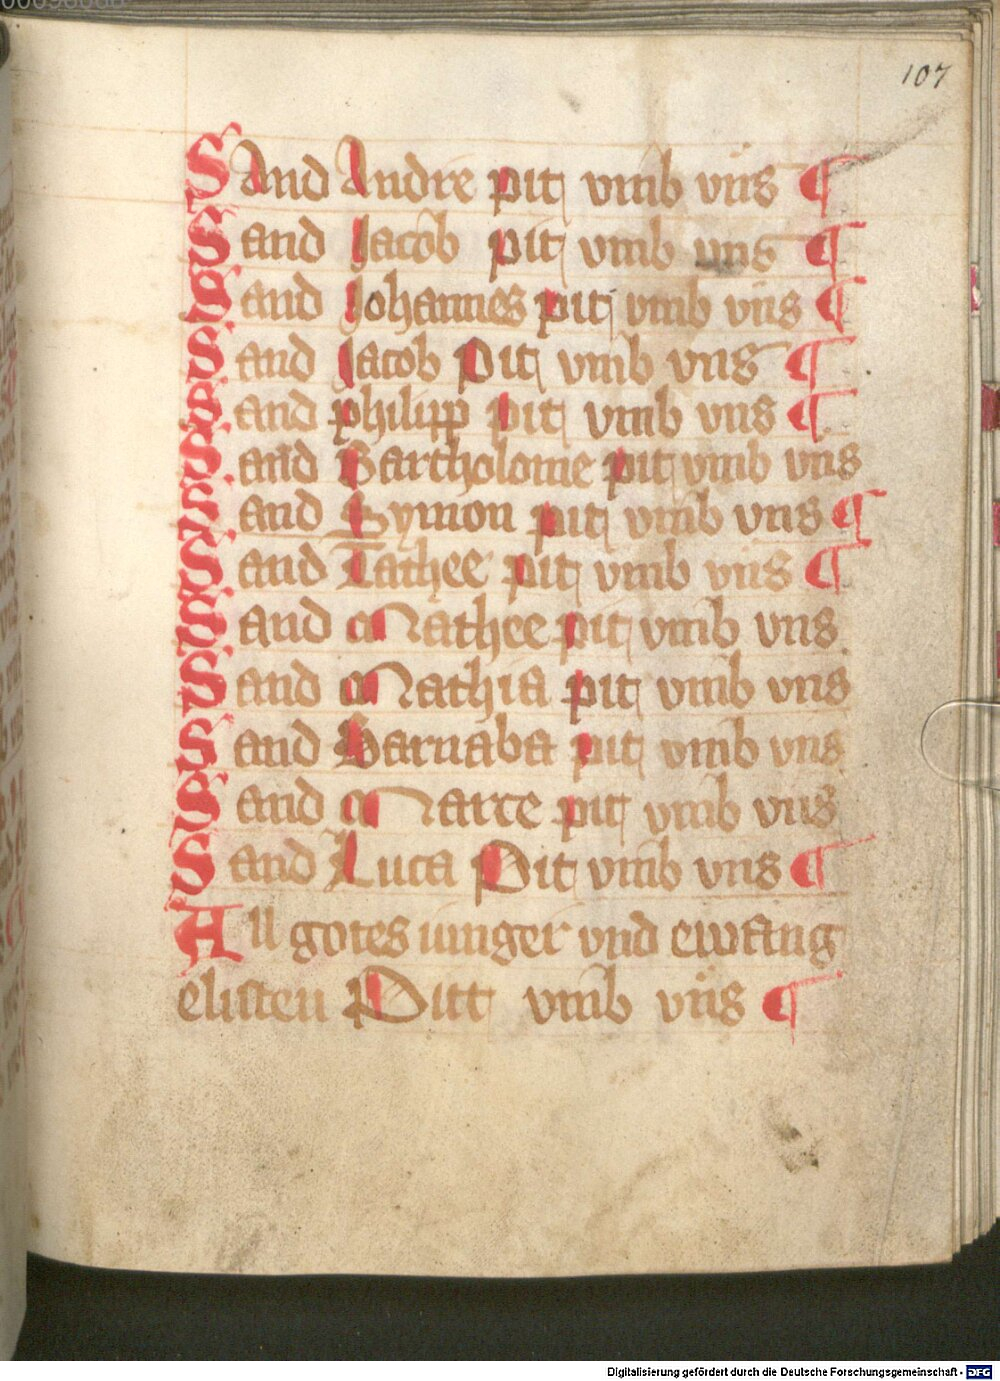 107
Sand Andre pit vmb vns ¶
Sand Jacob pit vmb vns ¶
Sand Johannes pit vmb vns ¶
Sand Jacob Pit vmb vns ¶
Sand philipp pit vmb vns ¶
Sand Bartholome pit vmb vns
Sand Symon pit vmb vns ¶
Sand Tathee pit vmb vns ¶
Sand Mathee pit vmb vns
Sand Mathia pit vmb vns
Sand Barnaba pit vmb vns
Sand Marce pit vmb vns
Sand Luca Pit vmb vns ¶
All gotes iunger vnd ewang
elisten Pitt vmb vns ¶
Digitalisierung gefördert durch die Deutsche Forschungsgemeinschaft - DFG